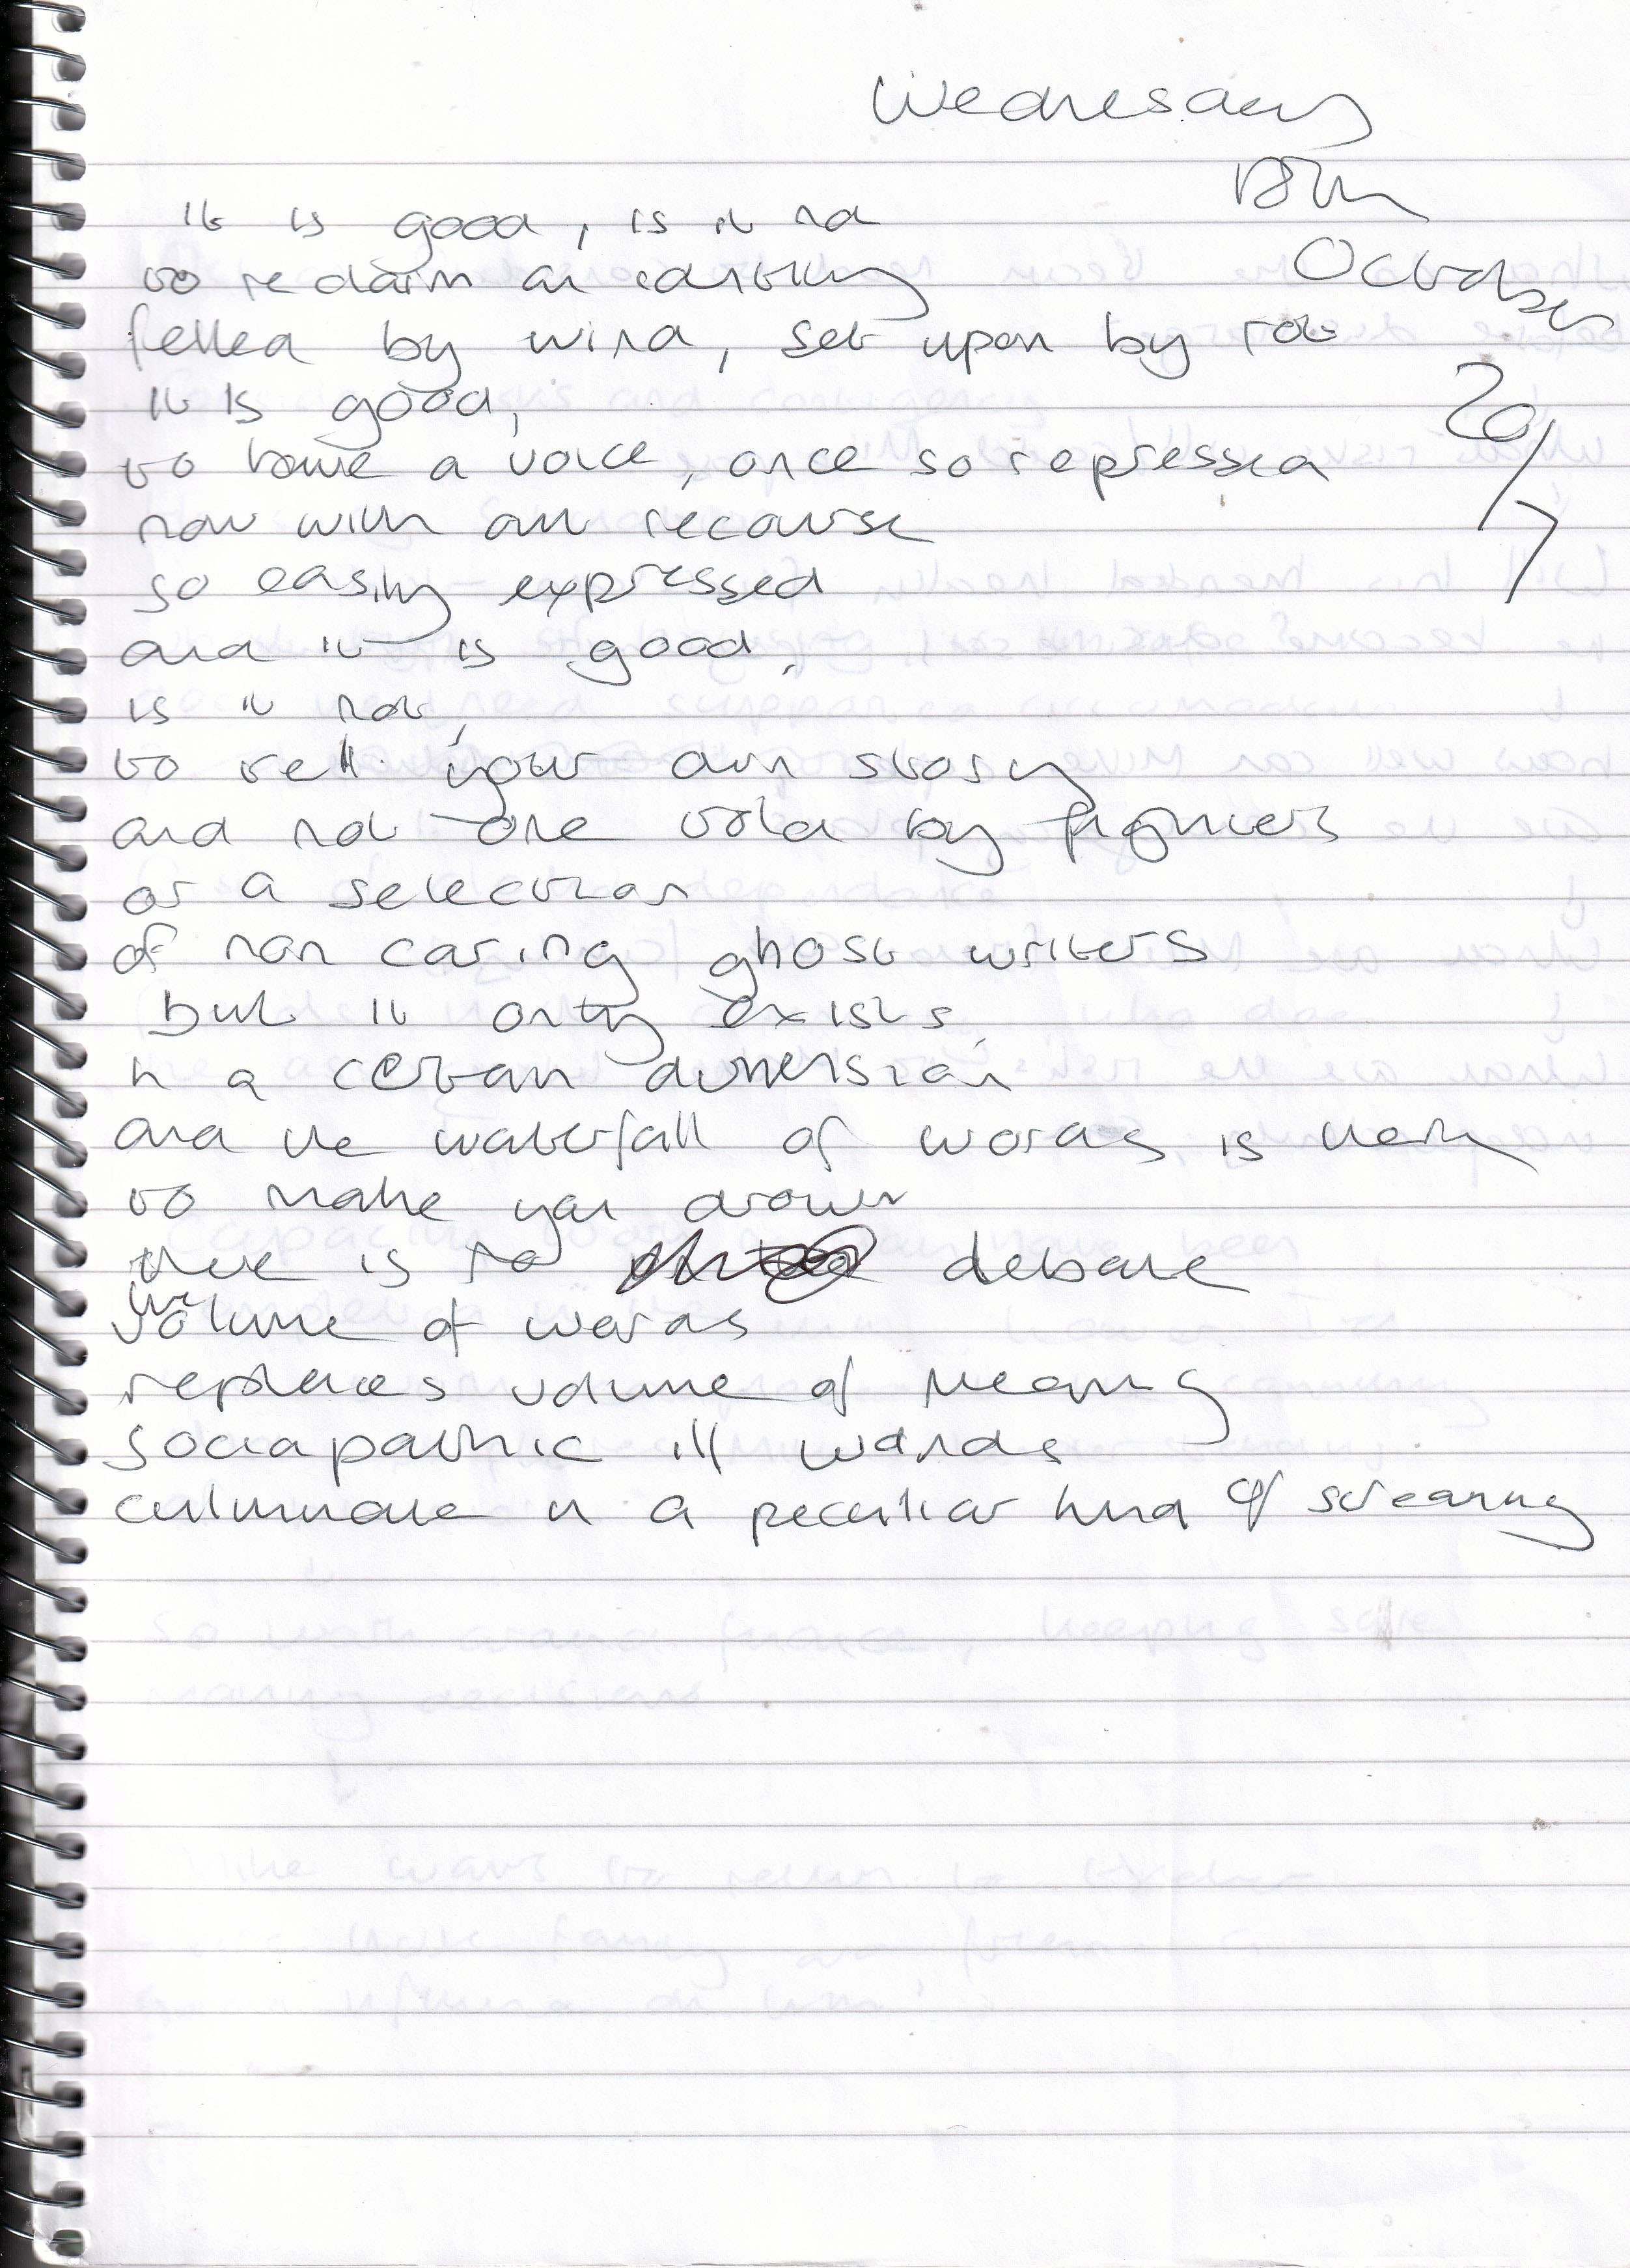 Wednesday
18th
October
2017
it is good, is it not
to reclaim an identity
felled by wind, set upon by rot
it is good,
to have a voice, once so repressed
now with all recourse
so easily expressed
and it is good,
is it not,
to tell your own story
and not one told by
or a selection
of non caring ghost writers
but it only exists,
in a certain dimension
and the waterfall of words, is there
to make you drown
there is no debate
volume of words
replaces volume of meaning
sociopathic ill winds
culminate in a peculiar kind of screaming